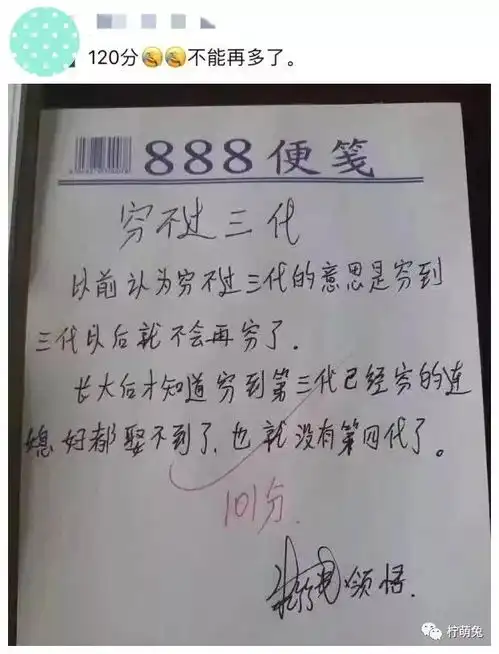 120分不能再多了。
888便笺
穷不过三代
以前认为穷不过三代的意思是穷到
三代以后就不会再穷了.
长大后才知道穷到第三代已经穷的连
媳妇都娶不到了,也就没有第四代了。
101分.
领悟.
柠萌兔